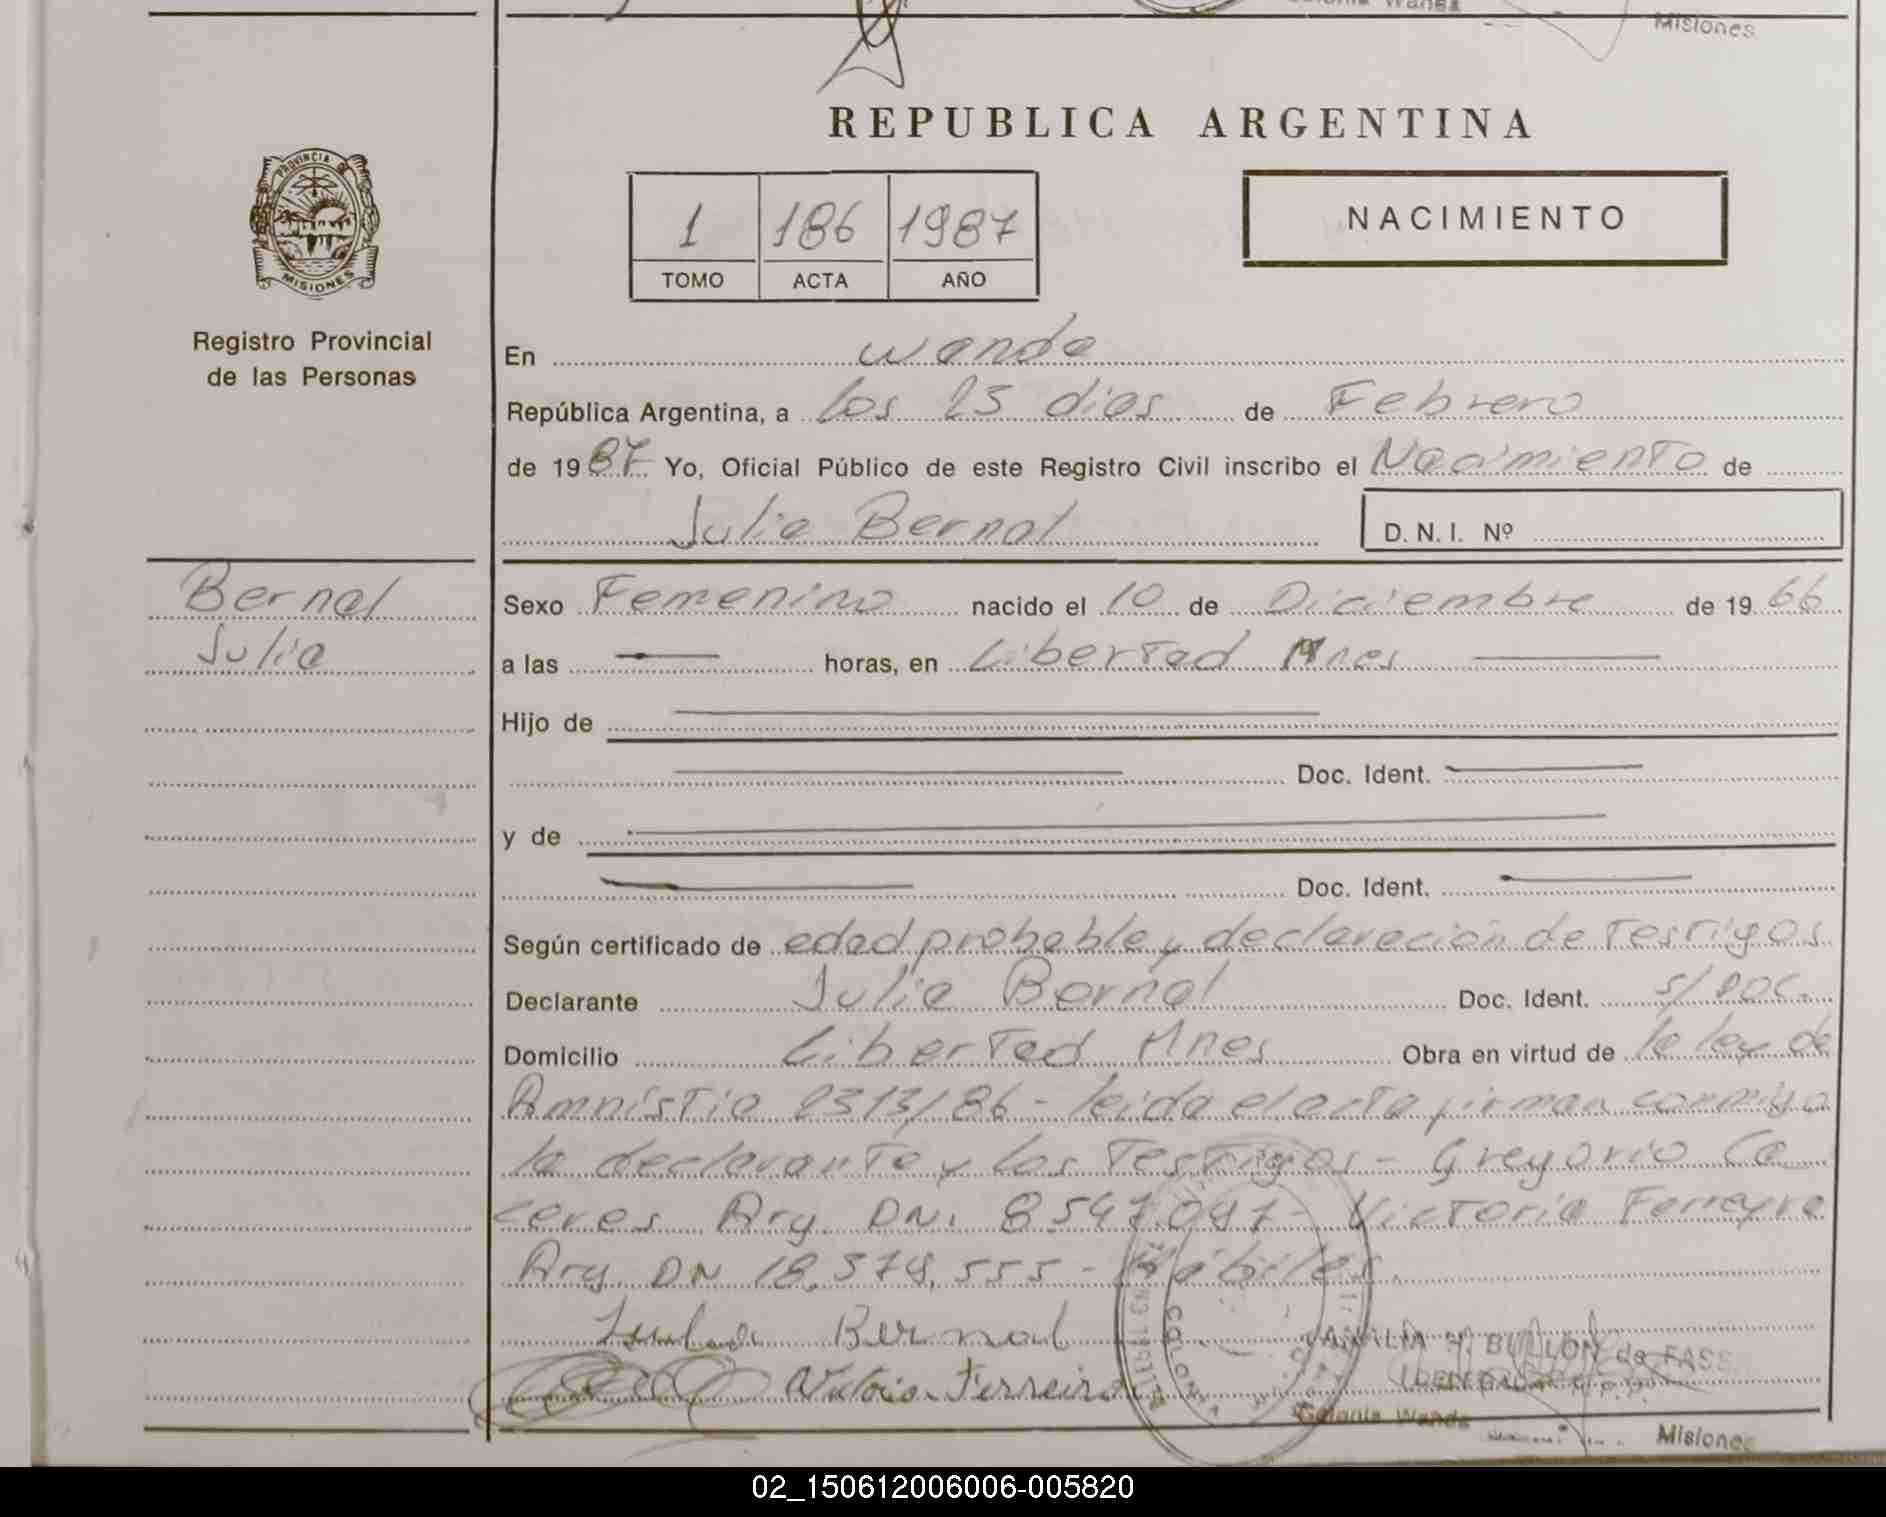 Misiones
REPUBLICA ARGENTINA
PROVINCIA DE
MISIONES
Registro Provincial
de las Personas
1 186 1987
TOMO ACTA AÑO
NACIMIENTO
En Wanda
República Argentina, a los 23 dias de Febrero
de 1987 Yo, Oficial Público de este Registro Civil inscribo el Nacimiento de
Julia Bernal D. N. I. Nº
Bernal
Julia
Sexo Femenino nacido el 10 de Diciembre de 1966
a las horas, en Libertad Mnes
Hijo de
Doc. Ident.
y de
Doc. Ident.
Según certificado de edad probable y declaracion de Testigos
Declarante Julia Bernal Doc. Ident. s/Doc.
Domicilio Libertad Mnes Obra en virtud de la ley de
Amnistia 2313/86 - leida el acta firman conmigo
la declarante y los Testigos - Gregorio Ca
ceres Arg. DN. 8.547.097 - Victoria Ferreyra
Arg DN 18.378.555 - Hábiles.
Julia Bernal
Ferreira
BULLON de FASS
Colonia Wanda
Misiones
02_150612006006-005820